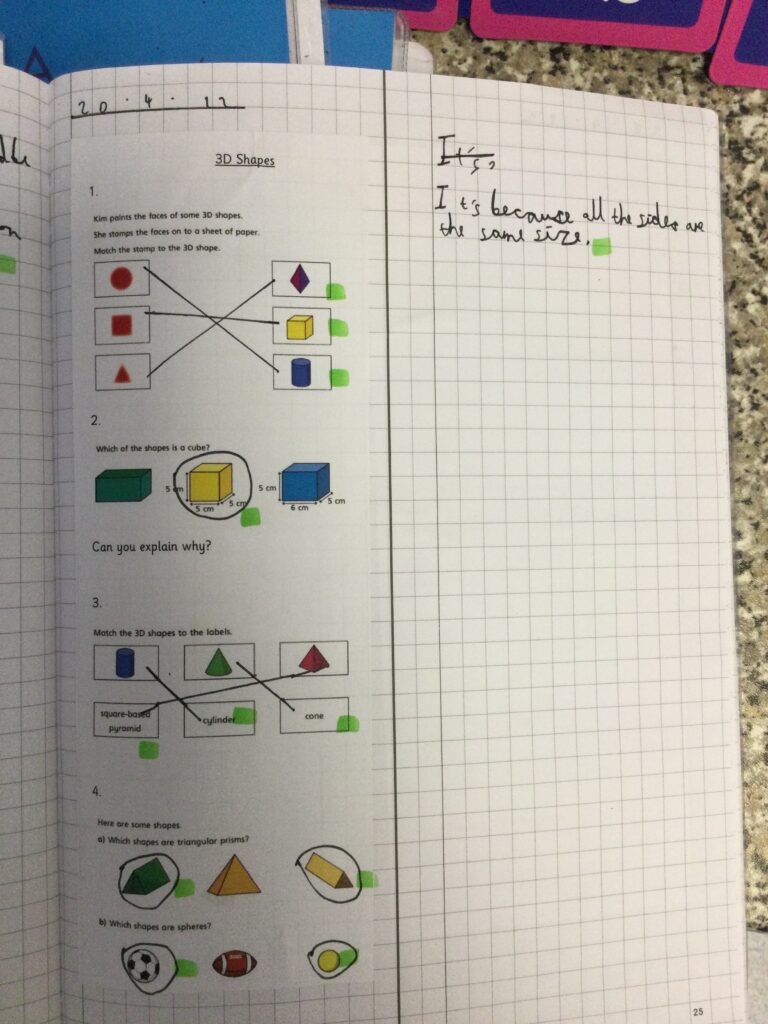 20.4.12
3D Shapes
1.
Kim paints the faces of some 3D shapes.
She stamps the faces on to a sheet of paper.
Match the stamp to the 3D shape.
2.
Which of the shapes is a cube?
5 cm
5 cm
5 cm
5 cm
6 cm
5 cm
Can you explain why?
3.
Match the 3D shapes to the labels.
square-based
pyramid
cylinder
cone
4.
Here are some shapes.
a) Which shapes are triangular prisms?
b) Which shapes are spheres?
It's,
It's because all the sides are
the same size.
25